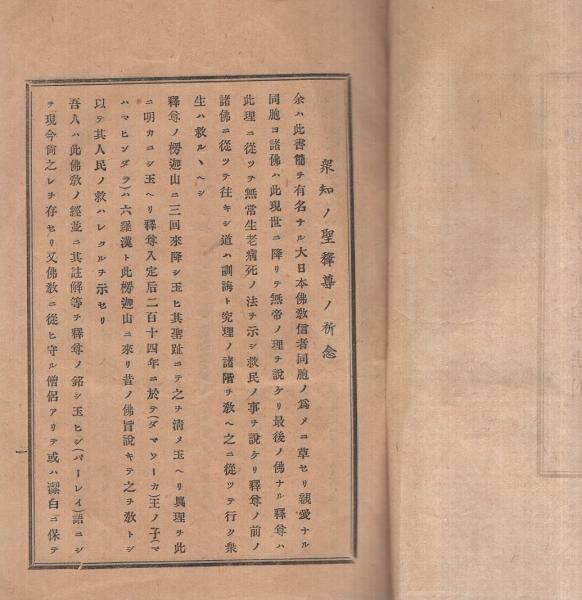 衆知ノ聖釋尊ノ祈念
余ハ此書簡ヲ有名ナル大日本佛敎信者同胞ノ爲メニ草セリ親愛ナル
同胞ヨ諸佛ハ此現世ニ降リテ無帝ノ理ヲ說ケリ最後ノ佛ナル釋尊ハ
此理ニ從ツテ無常生老病死ノ法ヲ示シ救民ノ事ヲ說ケリ釋尊ノ前ノ
諸佛ニ從ツテ往キシ道ハ訓誨ト究理ノ諸階ヲ敎ヘ之ニ從ツテ行ク衆
生ハ救ルヽヘシ
釋尊ノ楞迦山ニ三回來降シ玉ヒ其聖趾ニテ之ヲ淸メ玉ヘリ眞理ヲ此
ニ明カニシ玉ヘリ釋尊入定后二百十四年ニ於テ(ダマソーカ)王ノ子(マ
ハマヒンダラ)ハ六羅漢ト此楞迦山ニ來リ昔ノ佛旨說キテ之ヲ敎トシ
以テ其人民ノ救ハレタルヲ示セリ
吾人ハ此佛敎ノ經並ニ其註解等ヲ釋尊ノ銘シ玉ヒシ(パーレイ)語ニシ
テ現今尙之レヲ存セリ又佛敎ニ從ヒ守ル僧侶アリテ或ハ潔白ニ保テ
一